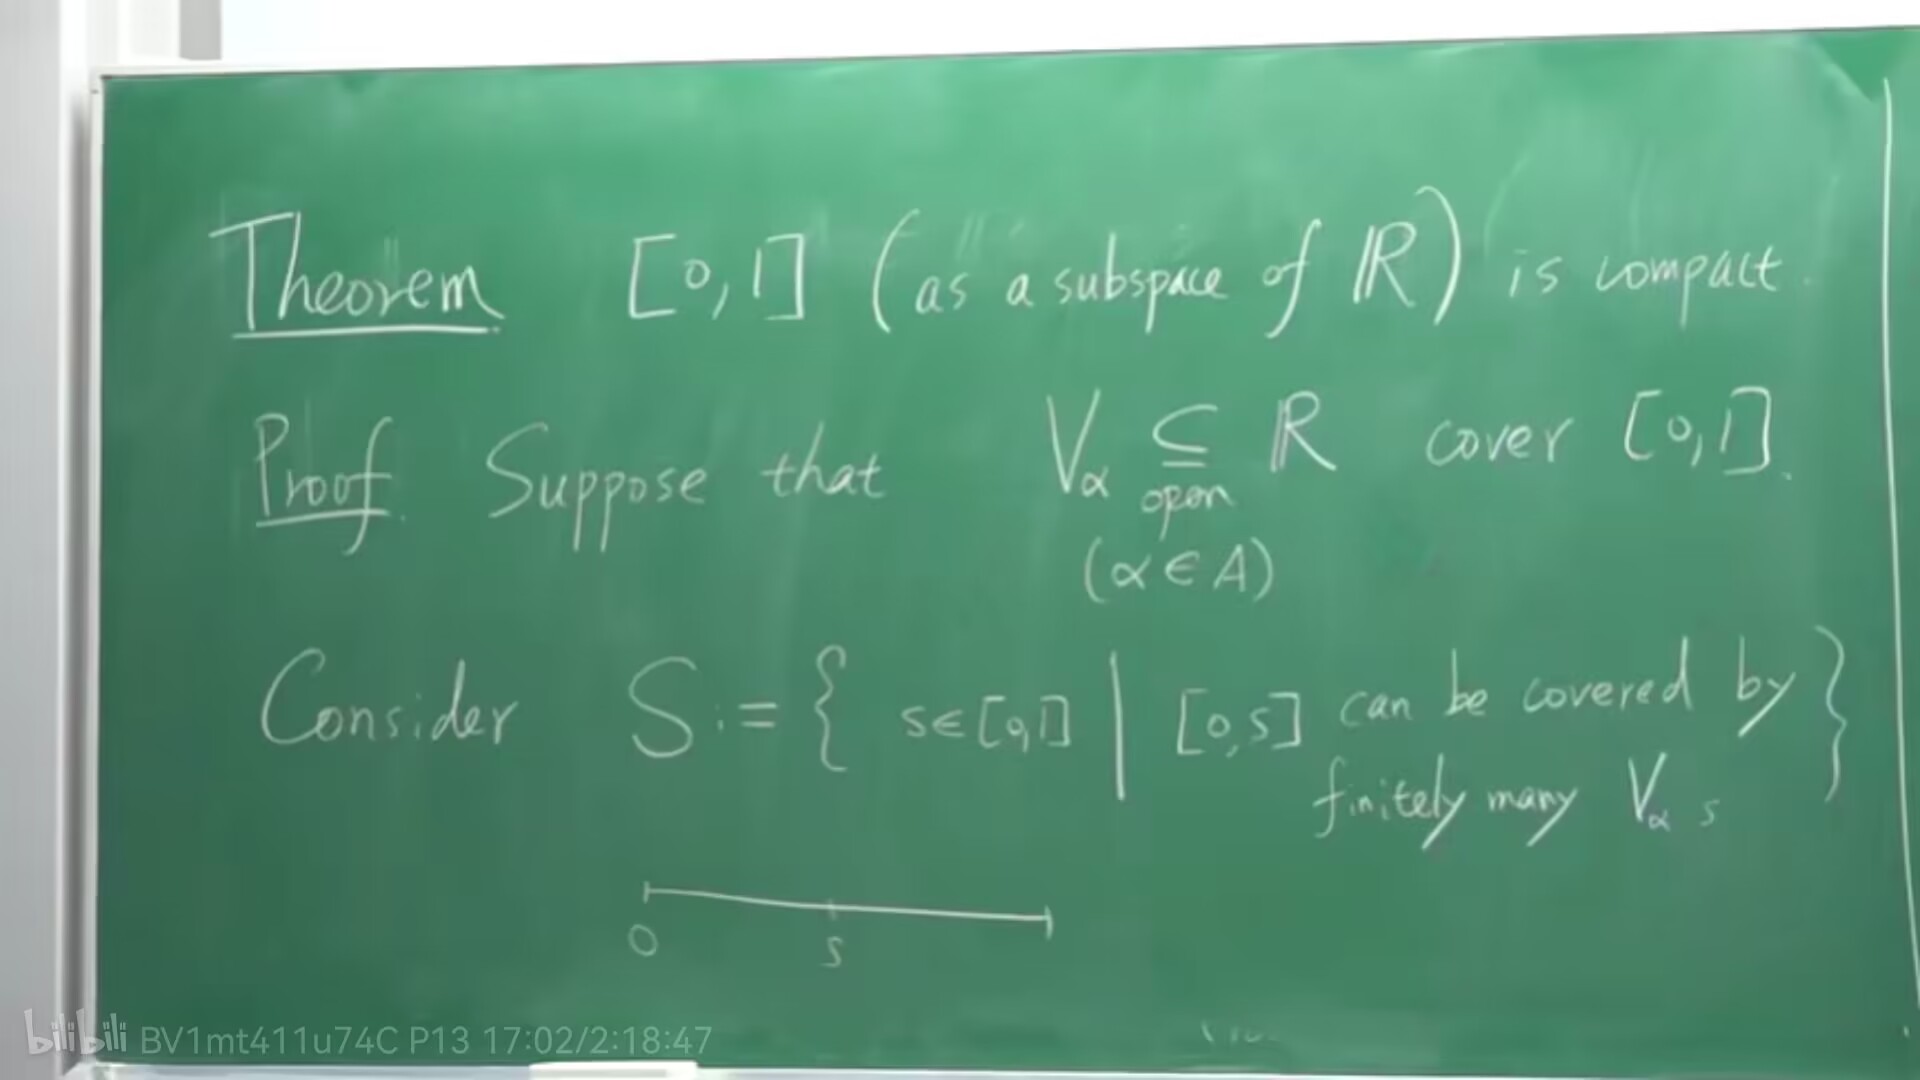 Theorem [0,1] (as a subspace of ℝ) is compact.
Proof. Suppose that Vα ⊆ ℝ cover [0,1].
open
(α∈A)
Consider S := { s∈[0,1] | [0,s] can be covered by }
finitely many Vα s
0 s
bilibili BV1mt411u74C P13 17:02/2:18:47